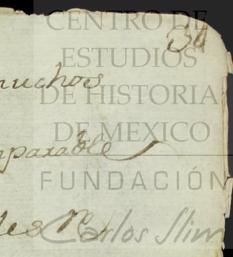 CENTRO DE
ESTUDIOS
muchos
DE HISTORIA
DE MEXICO
parable
FUNDACIÓN
Carlos Slim